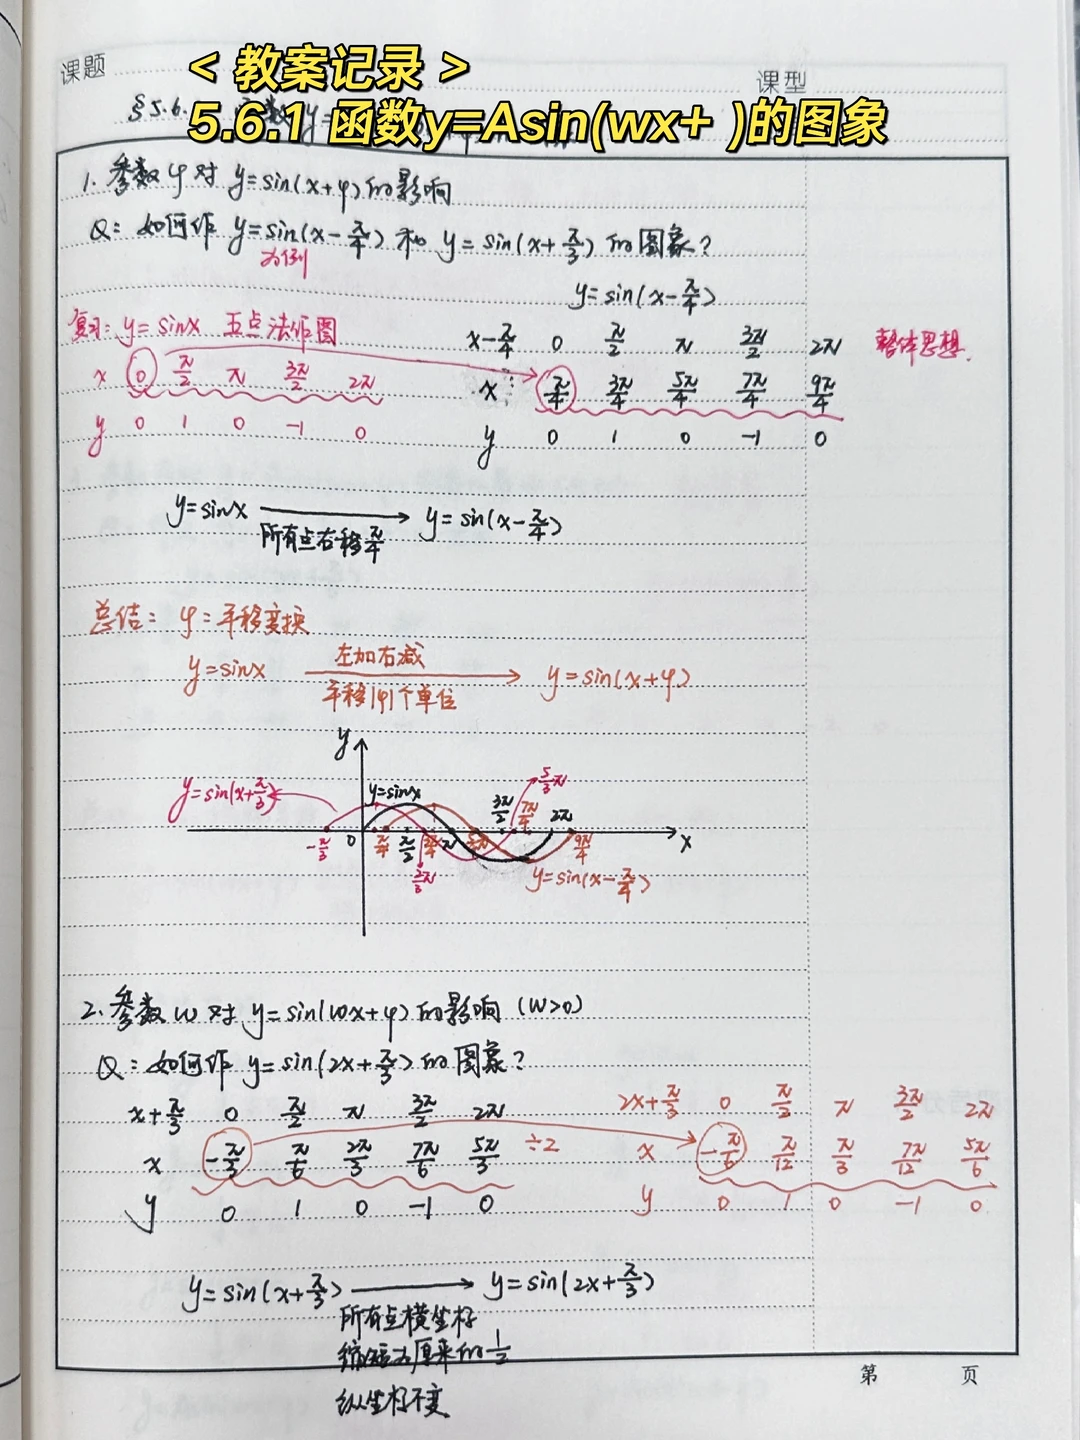 课题
课型
< 教案记录 >
§5.6.
5.6.1 函数y=Asin(wx+ )的图象
1. 参数φ对 y=sin(x+φ)的影响
Q: 如何作 y=sin(x-π/4) 和 y=sin(x+π/3) 的图象?
为例
y=sin(x-π/4)
复习: y=sinx 五点法作图
x 0 π/2 π 3π/2 2π
y 0 1 0 -1 0
x-π/4 0 π/2 π 3π/2 2π
x π/4 3π/4 5π/4 7π/4 9π/4
y 0 1 0 -1 0
整体思想.
y=sinx → y=sin(x-π/4)
所有点右移π/4
总结: φ: 平移变换
左加右减
y=sinx → y=sin(x+φ)
平移|φ|个单位
y
y=sin(x+π/3)
y=sinx
5/3π
3π/2 7π/4 2π
-π/3 0 π/4 π/2 3π/4 π 5π/4 9π/4 x
2/3π
y=sin(x-π/4)
2. 参数w对 y=sin(wx+φ)的影响 (w>0)
Q: 如何作 y=sin(2x+π/3)的图象?
x+π/3 0 π/2 π 3π/2 2π
x -π/3 π/6 2π/3 7π/6 5π/3 ÷2
y 0 1 0 -1 0
2x+π/3 0 π/2 π 3π/2 2π
x -π/6 π/12 π/3 7π/12 5π/6
y 0 1 0 -1 0
y=sin(x+π/3) → y=sin(2x+π/3)
所有点横坐标
缩短为原来的1/2
纵坐标不变
第 页